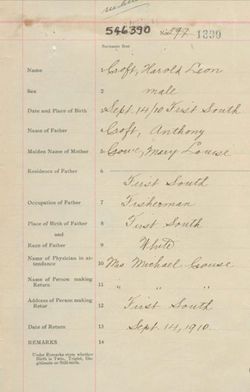 546390
No. 297 1330
Surname first
Name 1 Croft, Harold Leon
Sex 2 male
Date and Place of Birth 3 Sept. 14/10 First South
Name of Father 4 Croft, Anthony
Maiden Name of Mother 5 Crouse, Mary Louise
Residence of Father 6
First South
Occupation of Father 7 Fisherman
Place of Birth of Father 8 First South
and
Race of Father 9 White
Name of Physician in attendance 10 Mrs. Michael Crouse
Name of Person making Return 11 " " "
Address of Person making Return 12 First South
Date of Return 13 Sept. 14, 1910.
REMARKS 14
Under Remarks state whether
Birth is Twin, Triplet, Illegitimate
or Still-born.